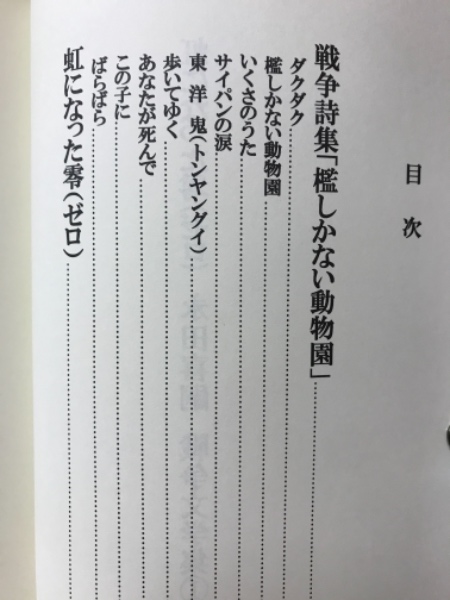 目次
戦争詩集「檻しかない動物園」
ダクダク
檻しかない動物園
いくさのうた
サイパンの涙
東洋鬼(トンヤングイ)
歩いてゆく
あなたが死んで
この子に
ばらばら
虹になった零(ゼロ)